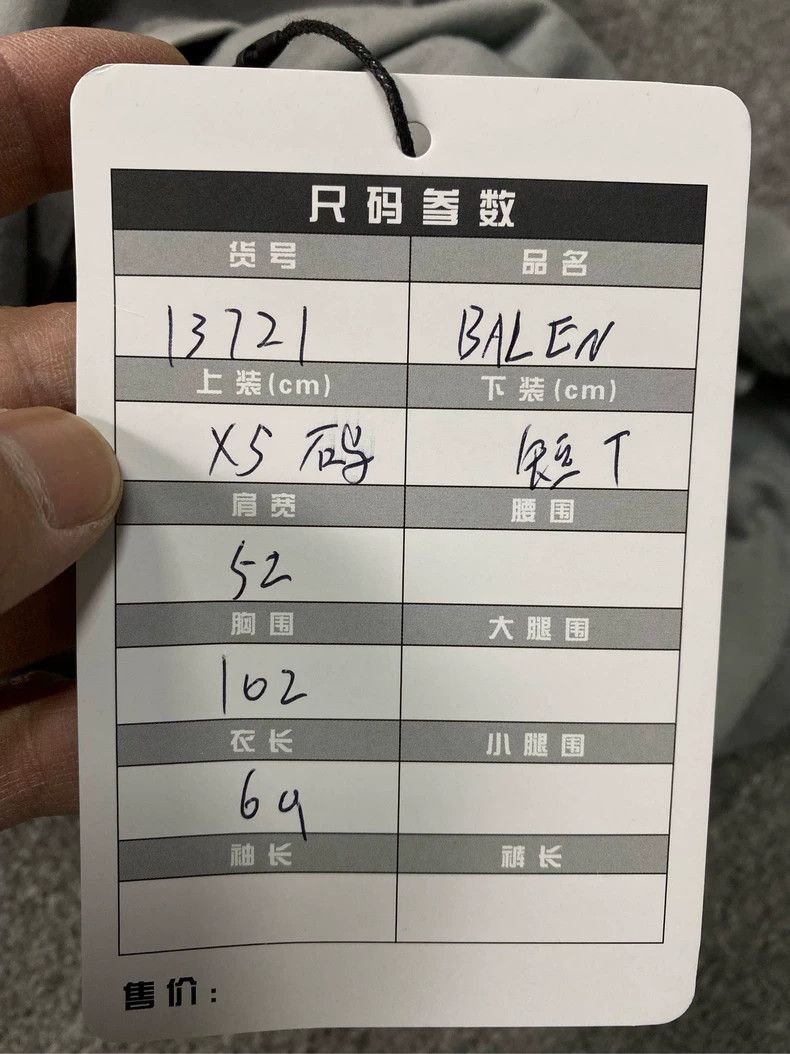 尺码参数
货号 品名
13721 BALEN
上装(cm) 下装(cm)
XS 码 短 T
肩宽 腰围
52
胸围 大腿围
102
衣长 小腿围
69
袖长 裤长
售价：